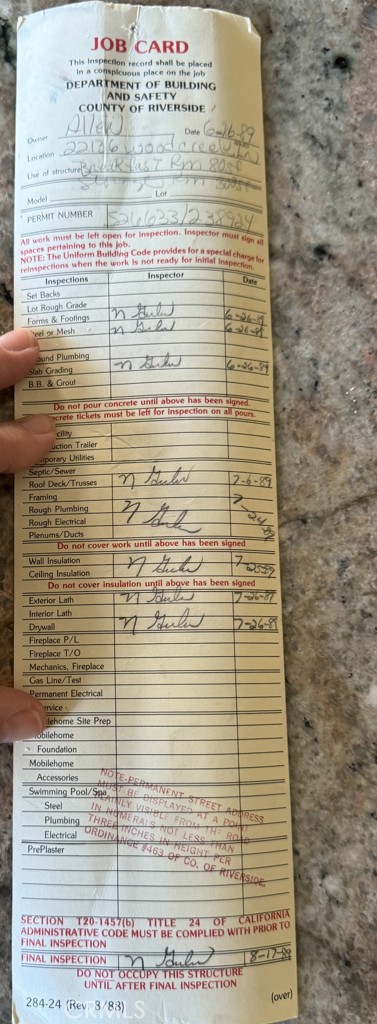 JOB CARD
This inspection record shall be placed
in a conspicuous place on the job
DEPARTMENT OF BUILDING
AND SAFETY
COUNTY OF RIVERSIDE
Owner Allen Date 6-26-89
Location 22136
Use of structure Breakfast Rm
Model Lot
PERMIT NUMBER
All work must be left open for inspection. Inspector must sign all
spaces pertaining to this job.
NOTE: The Uniform Building Code provides for a special charge for
reinspections when the work is not ready for initial inspection.
Inspections Inspector Date
Set Backs
Lot Rough Grade
Forms & Footings 6-26-89
eel or Mesh 6-26-89
ound Plumbing
Slab Grading 6-26-89
B.B. & Grout
Do not pour concrete until above has been signed.
crete tickets must be left for inspection on all pours.
cility
uction Trailer
porary Utilities
Septic/Sewer
Roof Deck/Trusses 7-6-89
Framing
Rough Plumbing 7-24-89
Rough Electrical
Plenums/Ducts
Do not cover work until above has been signed
Wall Insulation 7-25-89
Ceiling Insulation
Do not cover insulation until above has been signed
Exterior Lath 7-26-89
Interior Lath
Drywall 7-26-89
Fireplace P/L
Fireplace T/O
Mechanics, Fireplace
Gas Line/Test
Permanent Electrical
ervice
lehome Site Prep
obilehome
Foundation
Mobilehome
Accessories
Swimming Pool/Spa
Steel
Plumbing
Electrical
PrePlaster
NOTE-PERMANENT STREET ADDRESS
MUST BE DISPLAYED AT A POINT
PLAINLY VISIBLE FROM THE ROAD
IN NUMERALS NOT LESS THAN
THREE INCHES IN HEIGHT PER
ORDINANCE #463 OF CO. OF RIVERSIDE
SECTION T20-1457(b) TITLE 24 OF CALIFORNIA
ADMINISTRATIVE CODE MUST BE COMPLIED WITH PRIOR TO
FINAL INSPECTION
FINAL INSPECTION 8-17-89
DO NOT OCCUPY THIS STRUCTURE
UNTIL AFTER FINAL INSPECTION
284-24 (Rev. 3/83) (over)
CRMLS